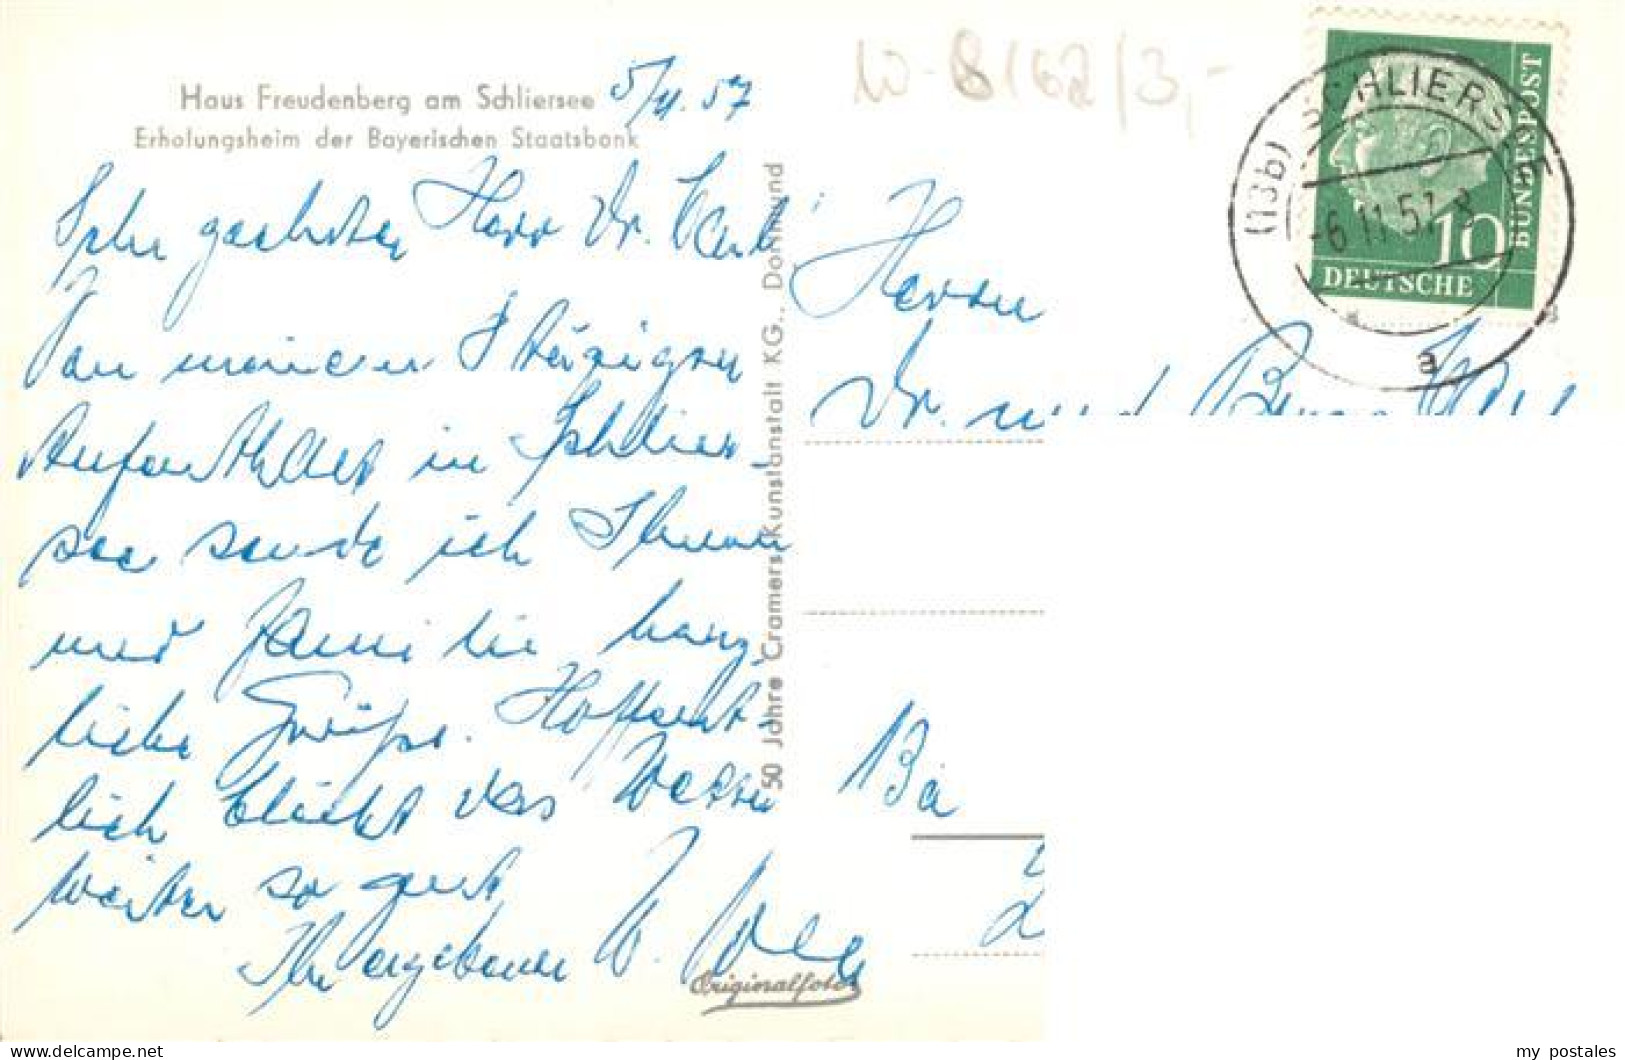 Haus Freudenberg am Schliersee
Erholungsheim der Bayerischen Staatsbank
5/11.57
Sehr geehrter Herr Dr.
Von meinem
Aufenthalt in Schlier-
see sende ich Ihnen
und Familie herz-
liche Grüße. Hoffent-
lich bleibt das Wetter
weiter so gut
Ihr ergebener
Originalfoto
50 Jahre Cramers Kunstanstalt KG., Dortmund
W-8162/3,-
(13b) SCHLIERSEE
-6.11.57.-8
a
10
DEUTSCHE
BUNDESPOST
Herrn
Dr. und
my postales